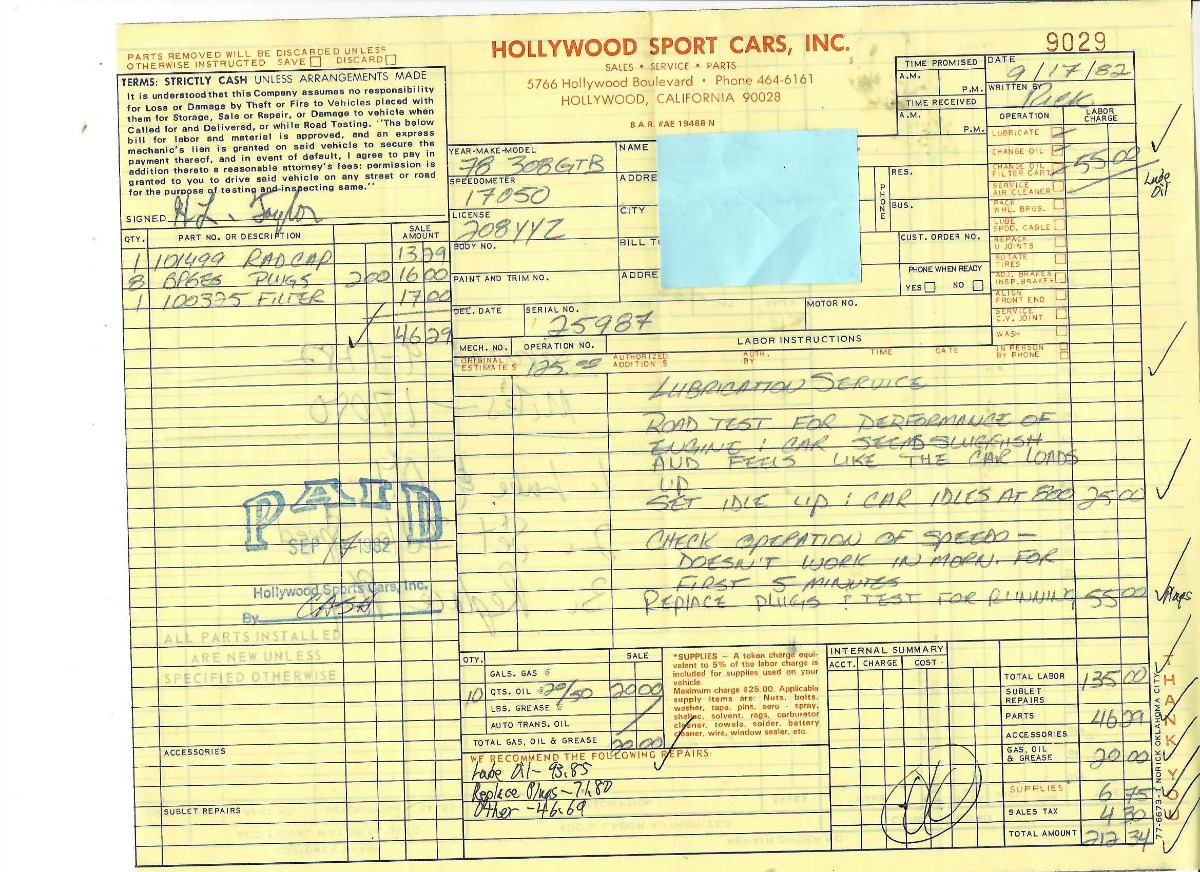 PARTS REMOVED WILL BE DISCARDED UNLESS
OTHERWISE INSTRUCTED SAVE DISCARD
HOLLYWOOD SPORT CARS, INC.
SALES • SERVICE • PARTS
5766 Hollywood Boulevard • Phone 464-6161
HOLLYWOOD, CALIFORNIA 90028
B.A.R. #AE 19488 N
9029
TERMS: STRICTLY CASH UNLESS ARRANGEMENTS MADE
It is understood that this Company assumes no responsibility
for Loss or Damage by Theft or Fire to Vehicles placed with
them for Storage, Sale or Repair, or Damage to vehicle when
Called for and Delivered, or while Road Testing. "The below
bill for labor and material is approved, and an express
mechanic's lien is granted on said vehicle to secure the
payment thereof, and in event of default, I agree to pay in
addition thereto a reasonable attorney's fees: permission is
granted to you to drive said vehicle on any street or road
for the purpose of testing and inspecting same."
SIGNED H L. Taylor
TIME PROMISED
A.M.
P.M.
TIME RECEIVED
A.M.
P.M.
DATE 9/17/82
WRITTEN BY Rick
OPERATION LABOR CHARGE
LUBRICATE
CHANGE OIL
CHANGE OIL FILTER CART. 55 00
SERVICE AIR CLEANER
PACK WHL. BRGS.
LUBE SPDO. CABLE
REPACK U JOINTS
ROTATE TIRES
ADJ. BRAKES INSP. BRAKES
ALIGN FRONT END
SERVICE C.V. JOINT
WASH
IN PERSON BY PHONE
Lube Oil
YEAR-MAKE-MODEL
78 308GTB
SPEEDOMETER
17050
LICENSE
208YYZ
BODY NO.
PAINT AND TRIM NO.
NAME
ADDRE
CITY
BILL TO
ADDRE
PHONE
RES.
BUS.
CUST. ORDER NO.
PHONE WHEN READY
YES NO
DEL. DATE
SERIAL NO.
25987
MOTOR NO.
QTY. PART NO. OR DESCRIPTION SALE AMOUNT
1 101499 RAD CAP 13 29
8 BP6ES PLUGS 200 16 00
1 100375 FILTER 17 00
46 29
MECH. NO. OPERATION NO. LABOR INSTRUCTIONS
ORIGINAL ESTIMATE $ 125.00 AUTHORIZED ADDITION $ AUTH. BY TIME DATE
LUBRICATION SERVICE
ROAD TEST FOR PERFORMANCE OF
ENGINE : CAR SEEMS SLUGFISH
AND FEELS LIKE THE CAR LOADS
UP
SET IDLE UP : CAR IDLES AT 800 25 00
CHECK OPERATION OF SPEEDO -
DOESN'T WORK IN MORN. FOR
FIRST 5 MINUTES
REPLACE PLUGS : TEST FOR RUNNING 55 00
Plugs
PAID
SEP 17 1982
Hollywood Sports Cars, Inc.
By CASH
ALL PARTS INSTALLED
ARE NEW UNLESS
SPECIFIED OTHERWISE
ACCESSORIES
SUBLET REPAIRS
QTY. SALE
GALS. GAS @
10 QTS. OIL @ 20/50 20 00
LBS. GREASE @
AUTO TRANS. OIL
TOTAL GAS, OIL & GREASE 20 00
*SUPPLIES - A token charge equi-
valent to 5% of the labor charge is
included for supplies used on your
vehicle.
Maximum charge $25.00. Applicable
supply items are: Nuts, bolts,
washer, tape, pins, aero - spray,
shellac, solvent, rags, carburetor
cleaner, towels, solder, battery
cleaner, wire, window sealer, etc.
WE RECOMMEND THE FOLLOWING REPAIRS:
Lube Oil - 93.85
Replace Plugs - 71.80
Other - 46.69
INTERNAL SUMMARY
ACCT. CHARGE COST
TOTAL LABOR 135 00
SUBLET REPAIRS
PARTS 46 29
ACCESSORIES
GAS, OIL & GREASE 20 00
SUPPLIES 6 75
SALES TAX 4 30
TOTAL AMOUNT 212 34
77-6673-1 NORICK OKLAHOMA CITY
THANK YOU